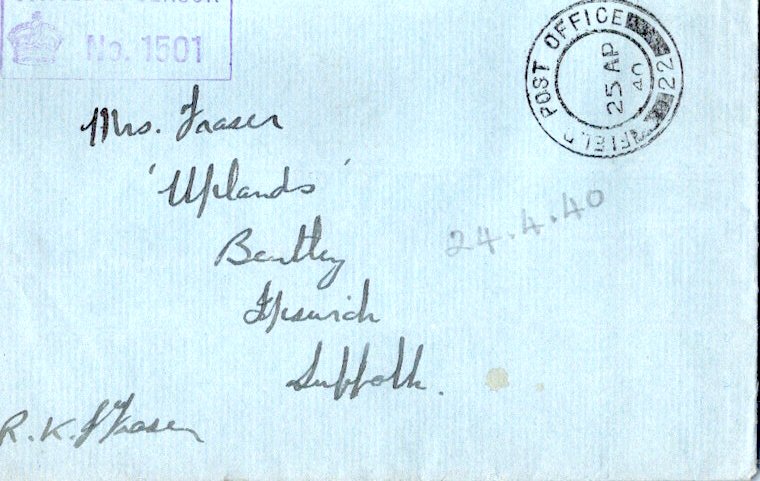 No. 1501
FIELD POST OFFICE 22
25 AP
40
Mrs. Fraser
'Uplands'
Bentley
Ipswich
Suffolk.
24.4.40
R. K. S Fraser